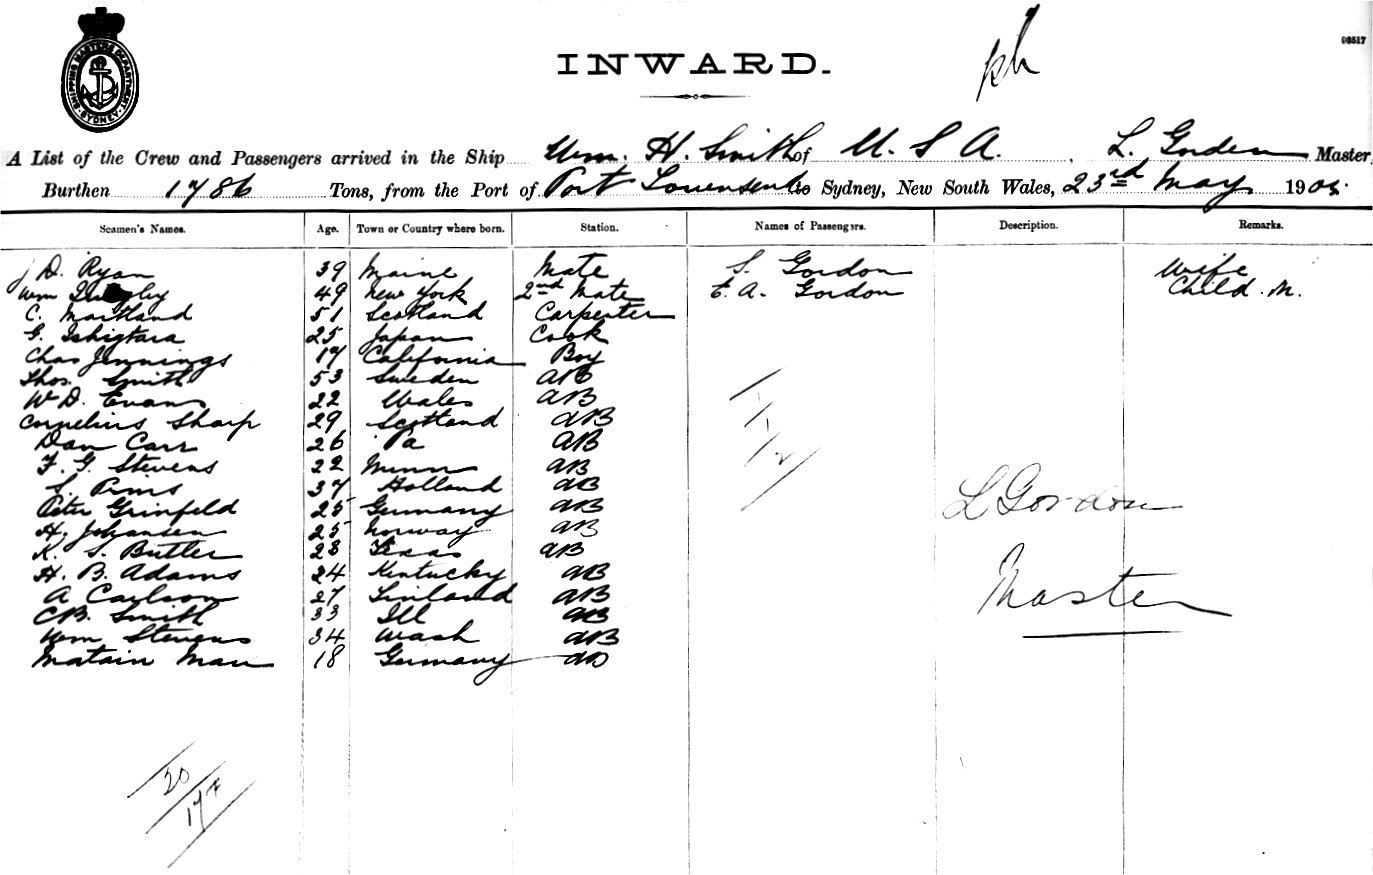 SHIPPING MASTERS DEPARTMENT SYDNEY
INWARD.
03517
A List of the Crew and Passengers arrived in the Ship Wm. H. Smith of U. S A. , L. Gorden Master
Burthen 1786 Tons, from the Port of Port to Sydney, New South Wales, 23rd May 1905
Seamen's Names. Age. Town or Country where born. Station. Names of Passengers. Description. Remarks.
D. Ryan 39 Maine Mate S. Gordon Wife
Wm 49 New York 2nd Mate E. A. Gordon Child. M.
C. Maitland 51 Scotland Carpenter
G. 25 Japan Cook
Chas Jennings 17 California Boy
Thos. Smith 53 Sweden AB
W. D. Evans 22 Wales AB
Cornelius Sharp 29 Scotland AB
Dan Carr 26 Pa AB
F. G. Stevens 22 Minn AB
S. Prins 37 Holland AB
Peter Grinfeld 25 Germany AB
H. Johansen 25 Norway AB
K. S. Butler 28 Texas AB
H. B. Adams 24 Kentucky AB
A Carlson 27 Finland AB
C B. Smith 33 Ill AB
Wm Stevens 34 Wash AB
Matain Mau 18 Germany AB
L Gordon
Master
20